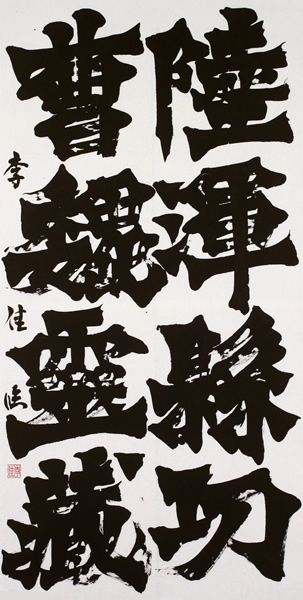 陸渾縣功
曹魏靈藏
李佳